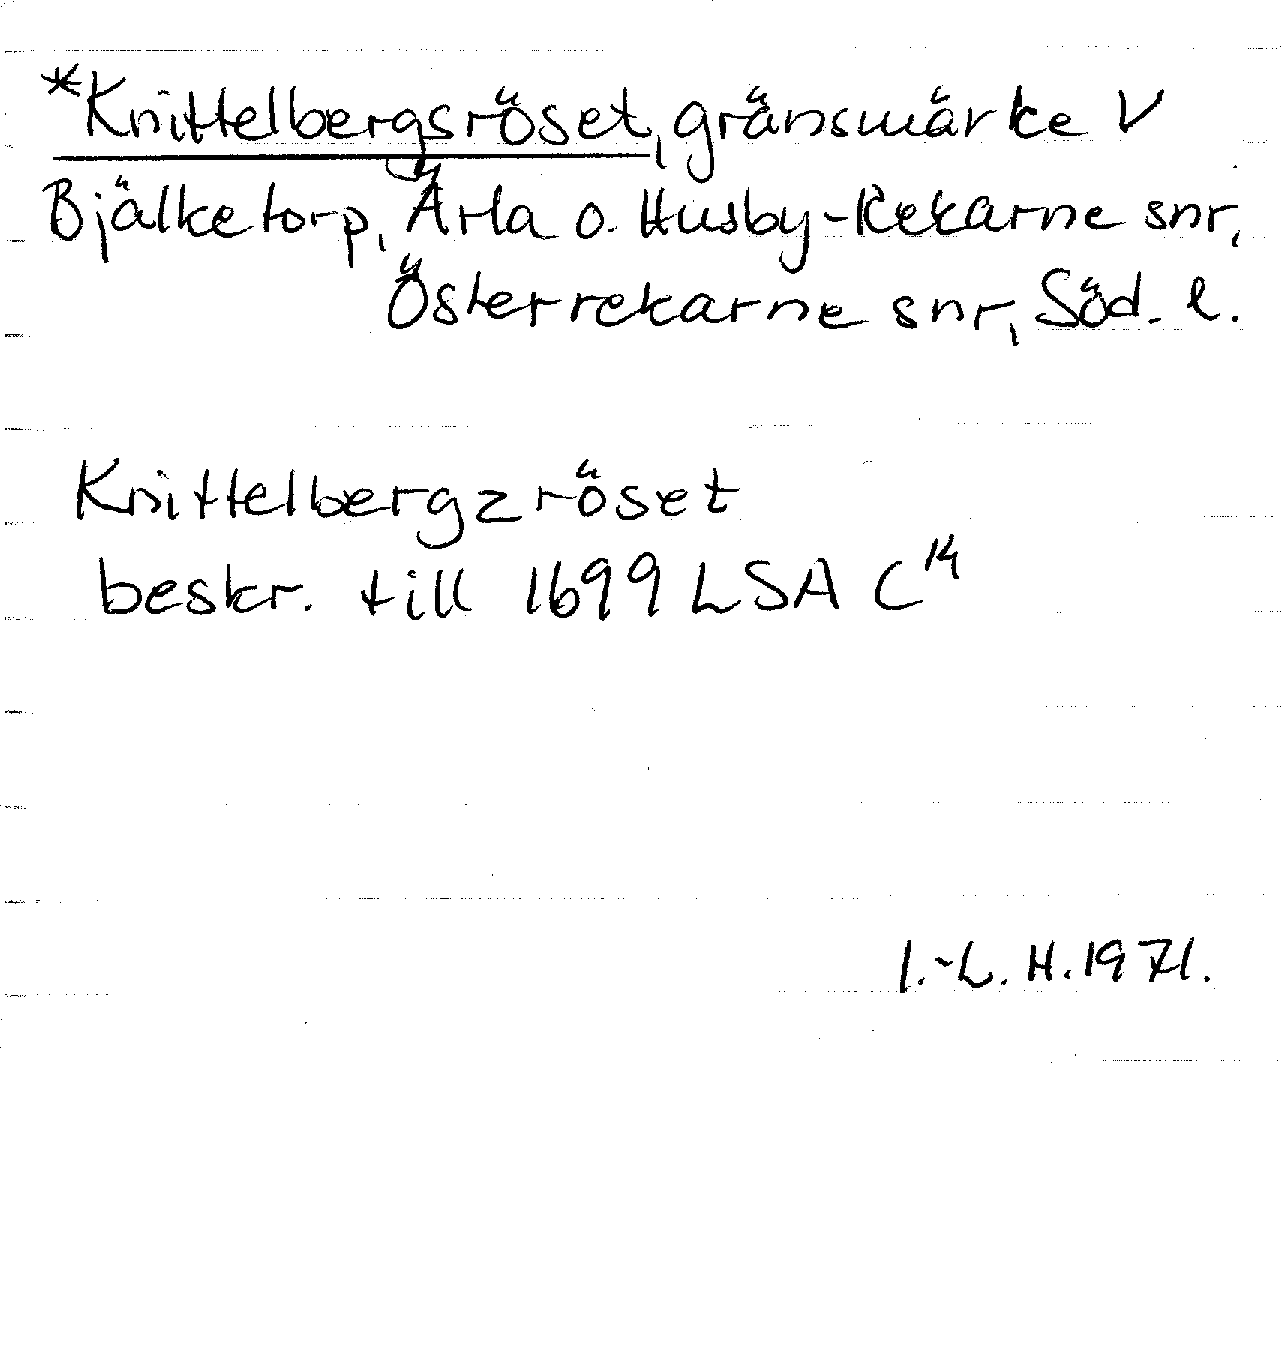 *Knittelbergsröset, gränsmärke V
Bjälketorp, Ärla o. Husby-Rekarne snr,
Österrekarne snr, Söd. l.
Knittelbergzröset
beskr. till 1699 LSA C¹⁴
I.-L. H. 1971.